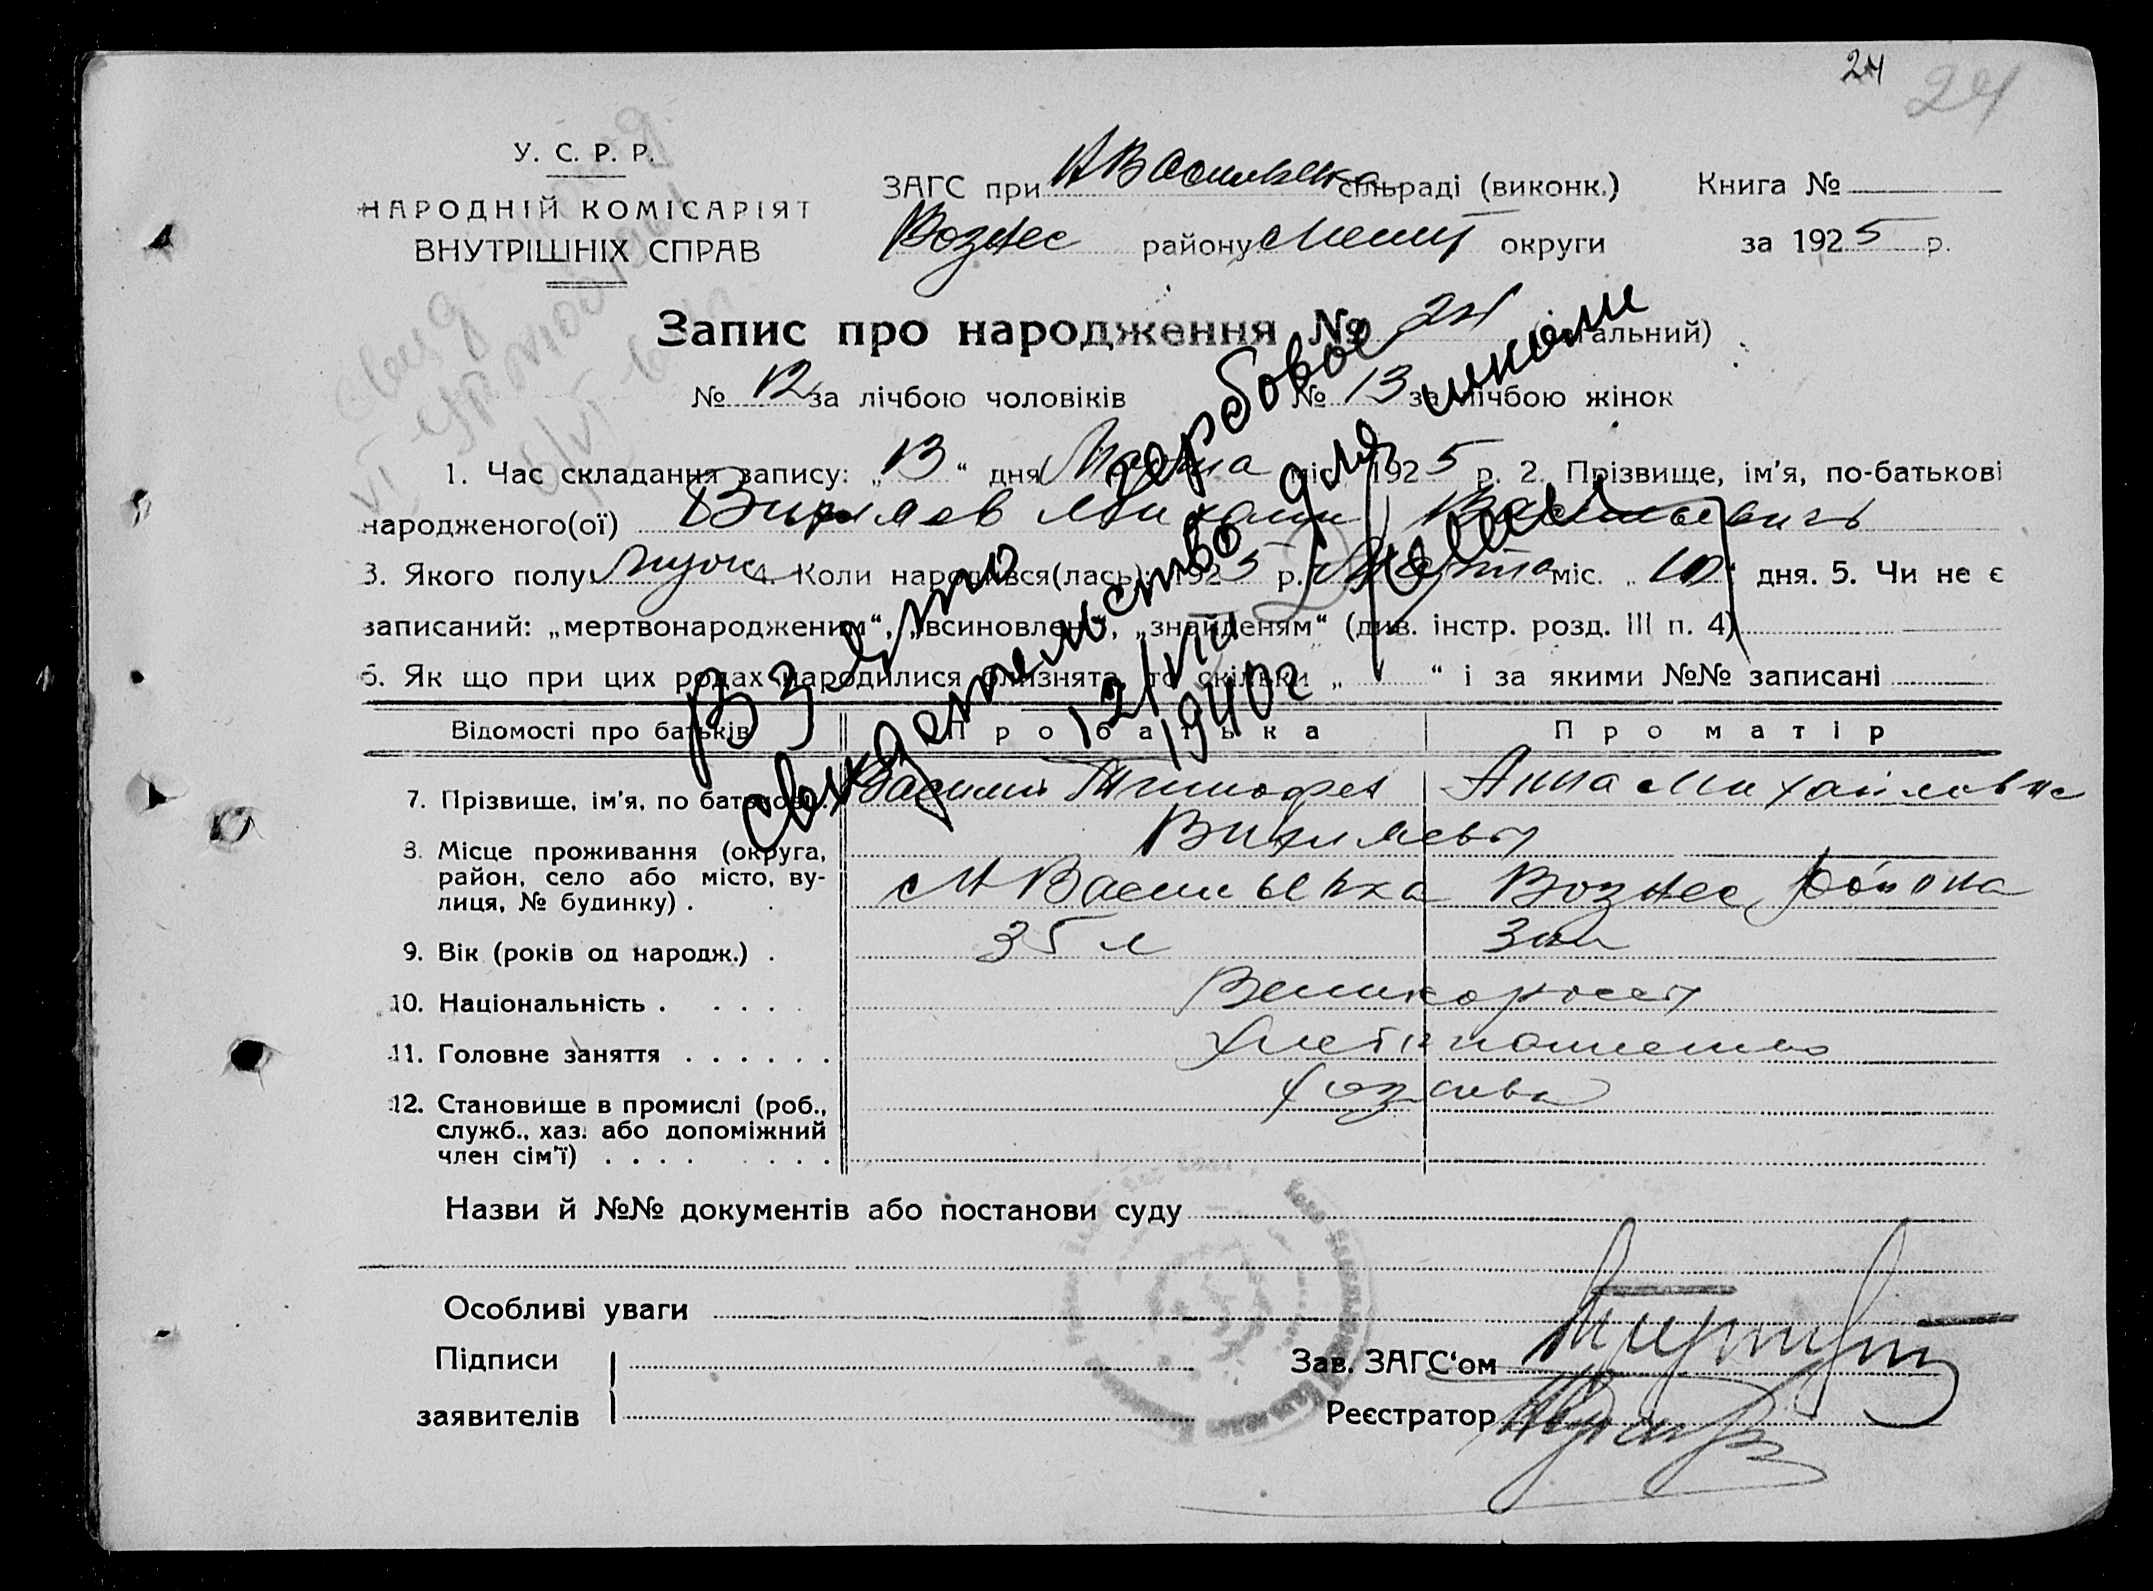 24 24
У. С. Р. Р.
НАРОДНІЙ КОМІСАРІЯТ
ВНУТРІШНІХ СПРАВ
ЗАГС при сільраді (виконк.) Книга №
Вознес району Мелит округи за 1925 р.
Запис про народження № 24 (загальний)
№ 12 за лічбою чоловіків № 13 за лічбою жінок
1. Час складання запису: „13“ дня Марта міс. 1925 р. 2. Прізвище, ім'я, по-батькові
народженого(ої) Михаил Васильевичъ
3. Якого полу Муж 4. Коли народився(лась): 1925 р. Марта міс. „10“ дня. 5. Чи не є
записаний: „мертвонародженим“, „всиновлен“, „знайденям“ (див. інстр. розд. III п. 4)
6. Як що при цих родах народилися близнята, то скільки „ “ і за якими №№ записані
Взято гербовое
свидетельство для школи
12/VIII
1940 г
Відомості про батьків Про батька Про матір
7. Прізвище, ім'я, по батькові. Василий Тимофея Анна Михайловна
8. Місце проживання (округа,
район, село або місто, вулиця, № будинку) . Н Васильевка Вознес района
9. Вік (років од народж.) . 35 л
10. Національність . . . . . Великоросы
11. Головне заняття . . . . . . Хлебопашество
12. Становище в промислі (роб.,
служб., хаз. або допоміжний
член сім'ї) . . . . . . . .
Назви й №№ документів або постанови суду
Особливі уваги
Підписи
заявителів
Зав. ЗАГС'ом
Реєстратор